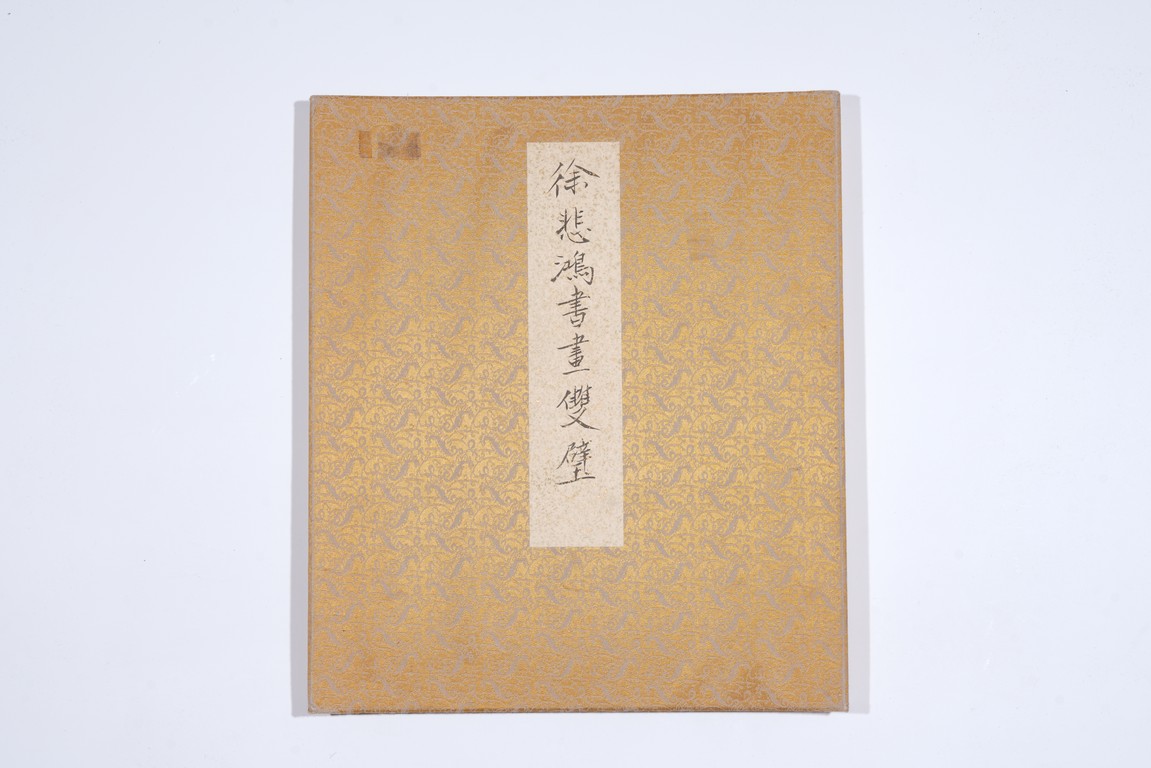 徐悲鴻書畫雙璧